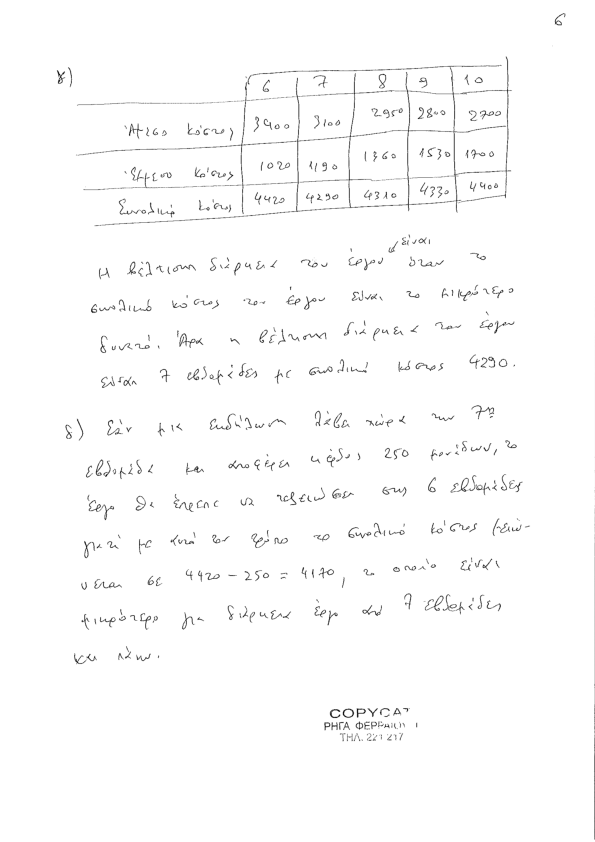 6
γ)
6 7 8 9 10
Άμεσο κόστος 3400 3100 2950 2800 2700
Έμμεσο κόστος 1020 1190 1360 1530 1700
Συνολικό κόστος 4420 4290 4310 4330 4400
είναι
Η βέλτιστη διάρκεια του έργου όταν το
συνολικό κόστος του έργου είναι το μικρότερο
δυνατό. Άρα η βέλτιστη διάρκεια του έργου
είναι 7 εβδομάδες με συνολικό κόστος 4290.
δ) Εάν μια εκδήλωση λάβει χώρα την 7η
εβδομάδα και αποφέρει κέρδος 250 μονάδων, το
έργο θα έπρεπε να τελειώσει στις 6 εβδομάδες
γιατί με αυτό τον τρόπο το συνολικό κόστος μειώ-
νεται σε 4420 - 250 = 4170, το οποίο είναι
μικρότερο για διάρκεια έργο από 7 εβδομάδες
και πάνω.
COPYCAT
ΡΗΓΑ ΦΕΡΡΑΙΟΥ 1
ΤΗΛ. 221 217